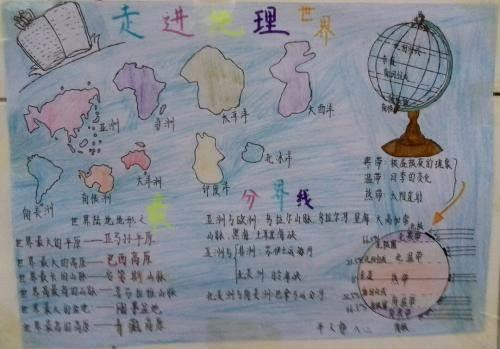 走进地理世界
亚洲
非洲
太平洋
大西洋
南美洲
南极洲
大洋洲
印度洋
北冰洋
寒带：极昼极夜的现象
温带：四季的变化
热带：太阳直射
世界陆地地形之最
分界线
世界最大的平原——亚马孙平原
世界最大的高原——巴西高原
世界最长的山脉——安第斯山脉
世界最高的山脉——喜马拉雅山脉
世界最大的盆地——刚果盆地
世界最高的高原——青藏高原
亚洲与欧洲：乌拉尔山脉、乌拉尔河、里海、大高加索
山脉、黑海、土耳其海峡
亚洲与非洲：苏伊士运河
北美洲：白令海峡
北美洲与南美洲：巴拿马运河
66.5°
23.5°
北温带
赤道
热带
南温带
23.5°
66.5°